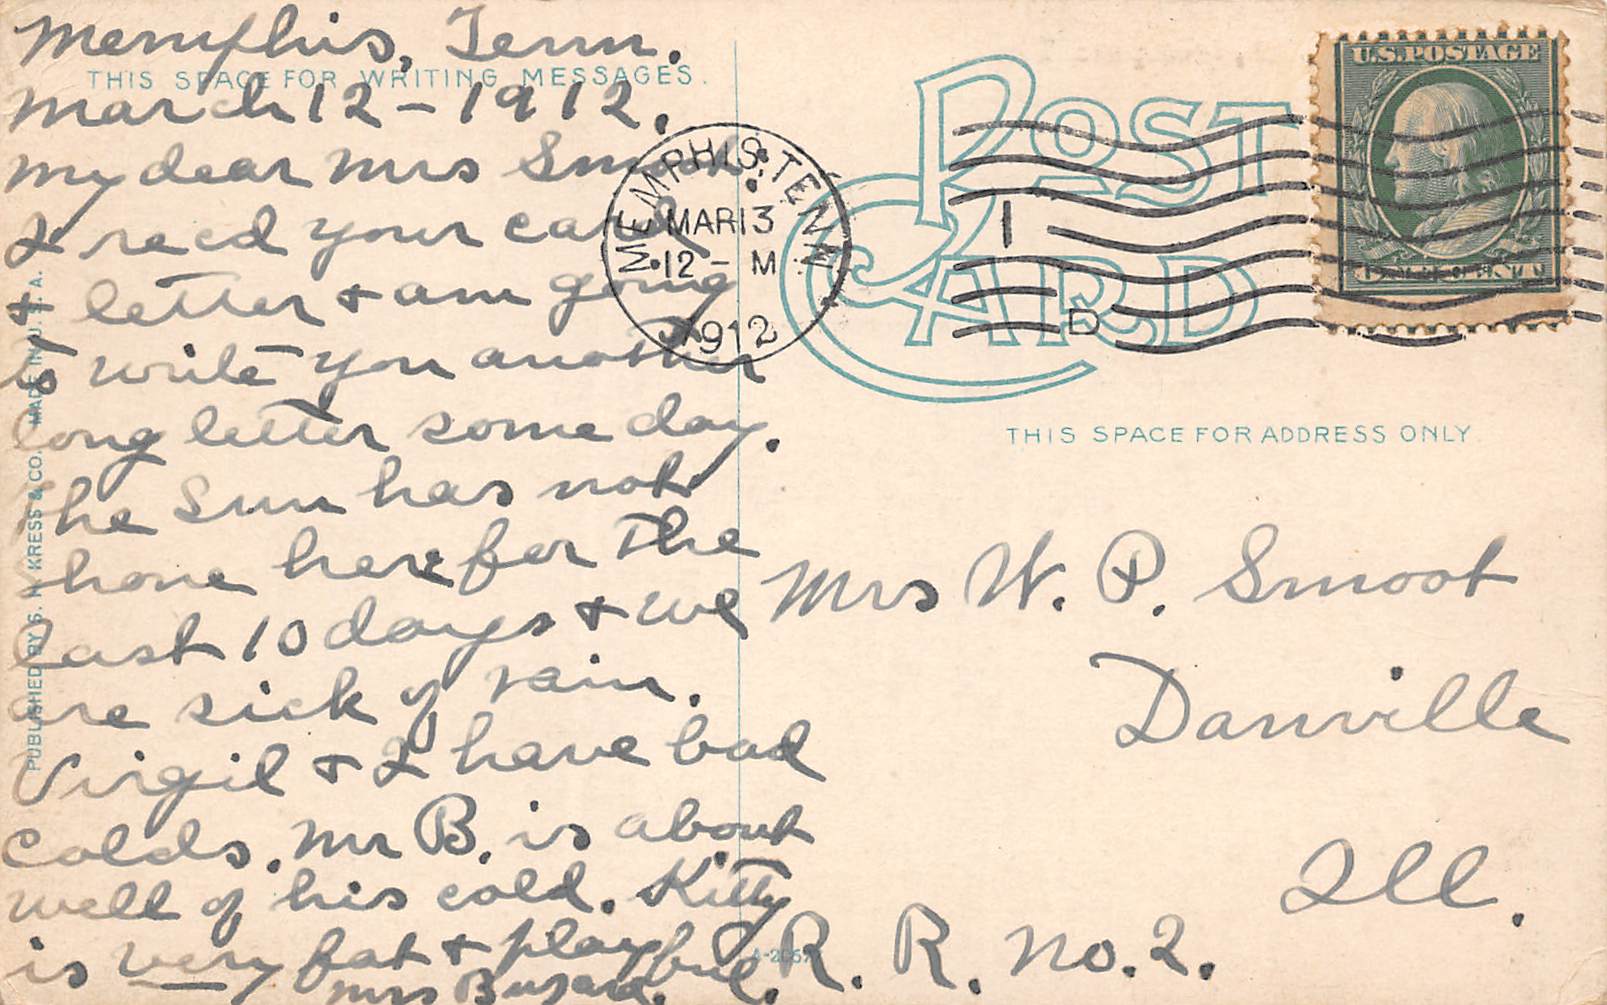 Memphis, Tenn.
THIS SPACE FOR WRITING MESSAGES.
March 12 - 1912.
My dear Mrs Smoot:
I recd your card
& letter & am going
to write you another
long letter some day.
The Sun has not
shone here for the
last 10 days & we
are sick of rain.
Virgil & I have bad
colds. Mr B. is about
well of his cold. Kitty
is very fat & playful.
Mrs
PUBLISHED BY S. H. KRESS & CO. MADE IN U. S. A.
MEMPHIS, TENN.
MAR 13
12 - M
1912
1
D
POST
CARD
U.S. POSTAGE
THIS SPACE FOR ADDRESS ONLY
Mrs W. P. Smoot
Danville
Ill.
R. R. No. 2.